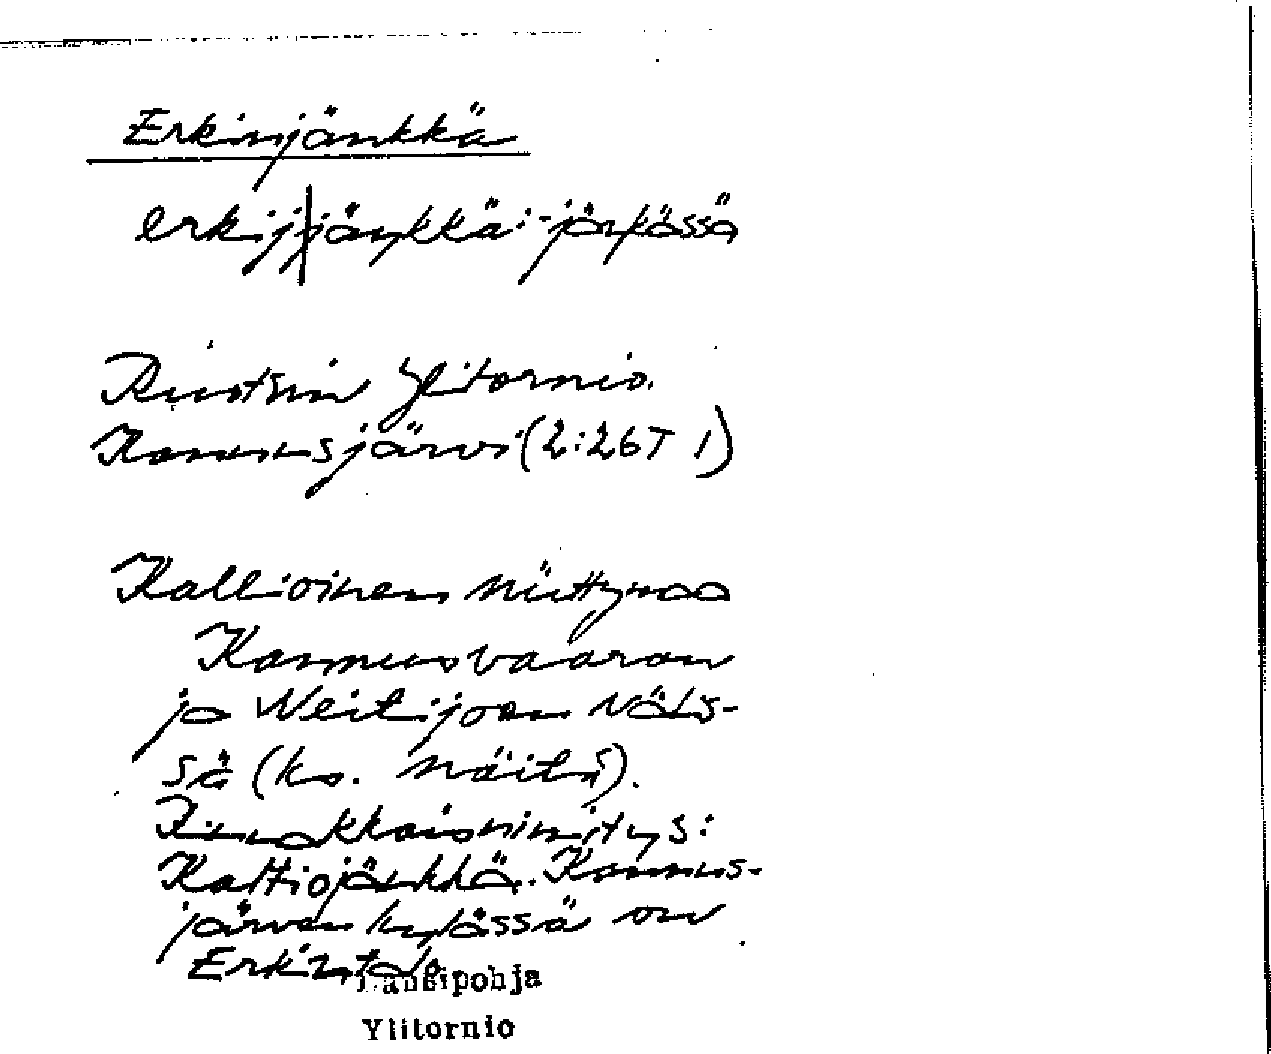 Erkinjänkkä
erkij|jäŋkkä: -jäŋkässä
Ruotsin Ylitornio.
Kannusjärvi (2:26T 1)
Kallioinen niittymaa
Kannusvaaran
ja Neitijoen väls-
sä (ks. näitä).
Rinnakkaisnimitys:
Kattiojänkkä. Kannus-
järven kylässä on
Erkintalo.
Länsipohja
Ylitornio